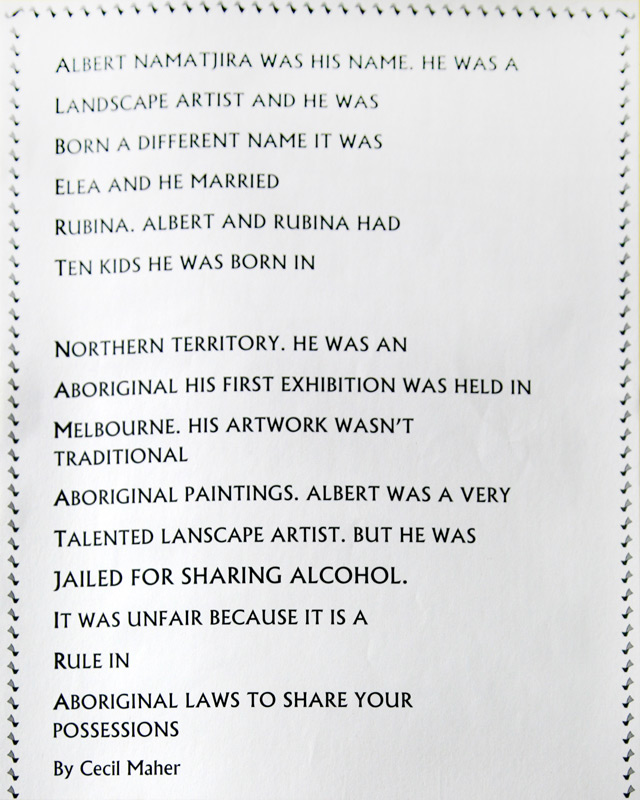 ALBERT NAMATJIRA WAS HIS NAME. HE WAS A
LANDSCAPE ARTIST AND HE WAS
BORN A DIFFERENT NAME IT WAS
ELEA AND HE MARRIED
RUBINA. ALBERT AND RUBINA HAD
TEN KIDS HE WAS BORN IN
NORTHERN TERRITORY. HE WAS AN
ABORIGINAL HIS FIRST EXHIBITION WAS HELD IN
MELBOURNE. HIS ARTWORK WASN'T
TRADITIONAL
ABORIGINAL PAINTINGS. ALBERT WAS A VERY
TALENTED LANSCAPE ARTIST. BUT HE WAS
JAILED FOR SHARING ALCOHOL.
IT WAS UNFAIR BECAUSE IT IS A
RULE IN
ABORIGINAL LAWS TO SHARE YOUR
POSSESSIONS
By Cecil Maher